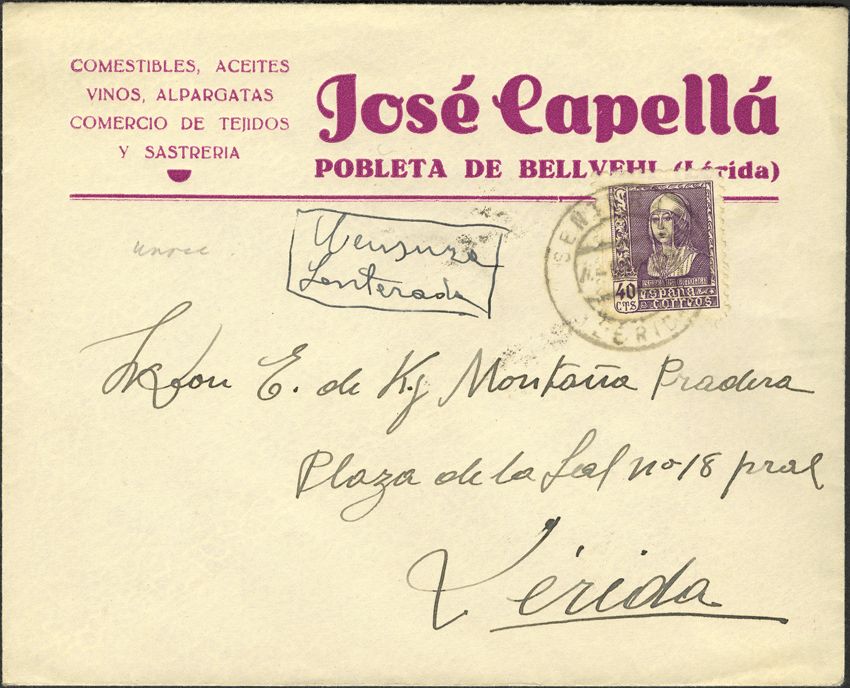 COMESTIBLES, ACEITES
VINOS, ALPARGATAS
COMERCIO DE TEJIDOS
Y SASTRERIA
José Capellá
POBLETA DE BELLVEHI (Lérida)
40 CTS
España
CORREOS
SENT
LÉRID
Censura
Senterada
E. de Kg Montaña Pradera
Plaza de la Sal nº 18 pral
Lérida